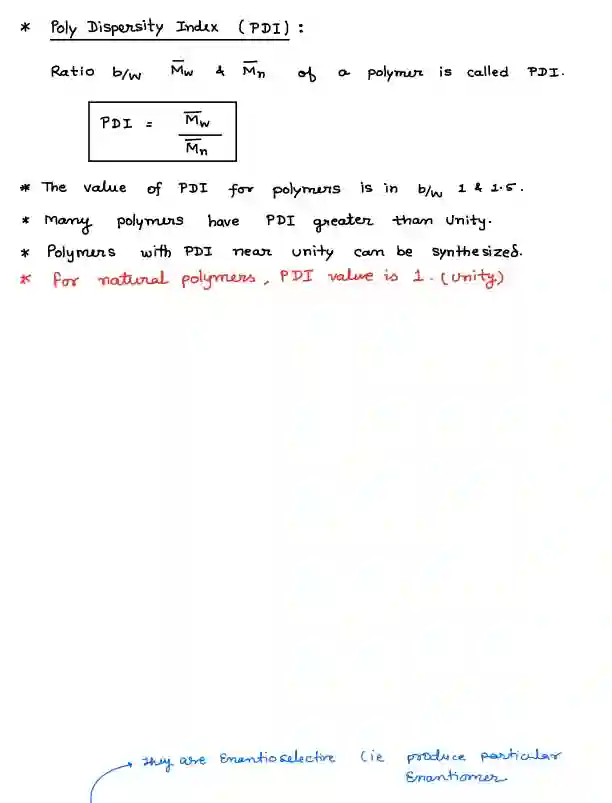 * Poly Dispersity Index (PDI) :
Ratio b/w M̅w & M̅n of a polymer is called PDI.
PDI = M̅w / M̅n
* The value of PDI for polymers is in b/w 1 & 1.5.
* Many polymers have PDI greater than Unity.
* Polymers with PDI near unity can be synthesized.
* For natural polymers, PDI value is 1. (Unity)
They are Enantioselective (ie produce particular
Enantiomer